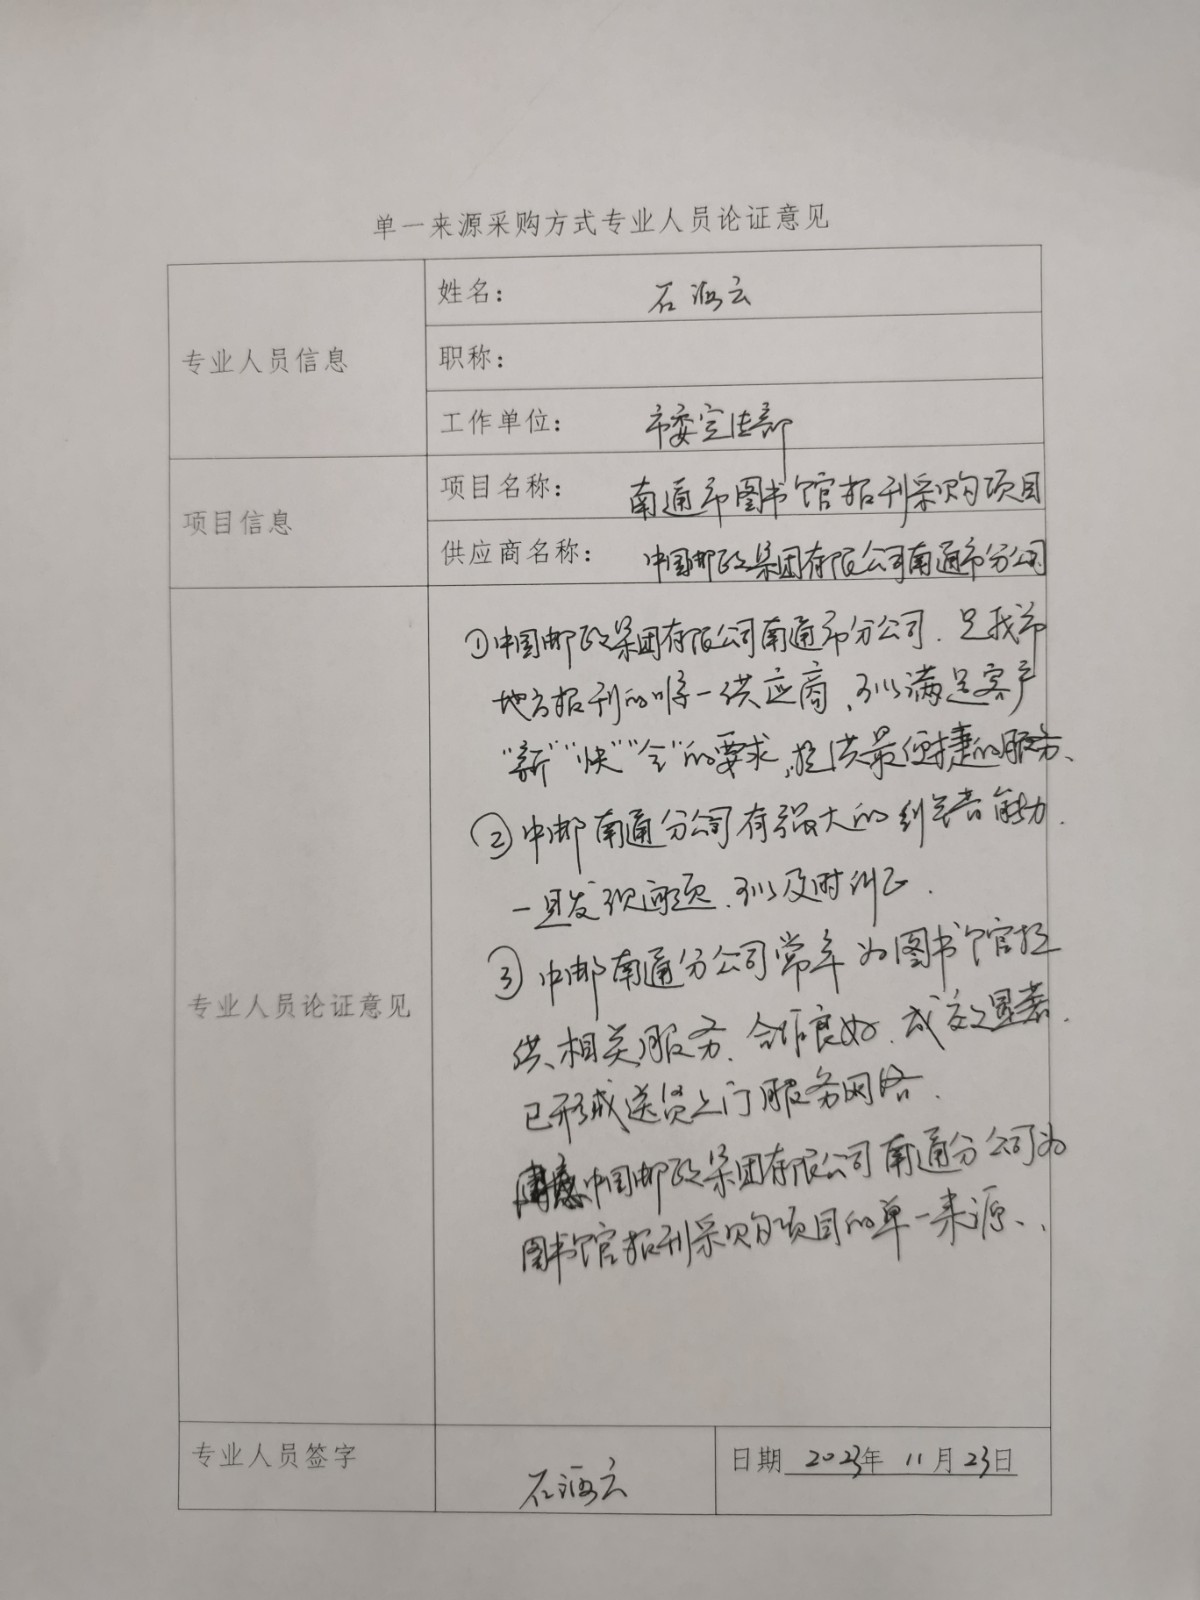 单一来源采购方式专业人员论证意见
专业人员信息
姓名： 石海云
职称：
工作单位： 市委宣传部
项目信息
项目名称： 南通市图书馆报刊采购项目
供应商名称： 中国邮政集团有限公司南通市分公司
专业人员论证意见
①中国邮政集团有限公司南通市分公司，是我市
地方报刊的唯一供应商，可以满足客户
“新”“快”“全”的要求，提供最便捷的服务、
②中邮南通分公司有强大的纠错能力．
一旦发现问题，可以及时纠正．
③中邮南通分公司常年为图书馆提
供相关服务，合作良好，成效显著．
已形成送货上门服务网络．
中国邮政集团有限公司南通分公司为
图书馆报刊采购项目的单一来源、．
专业人员签字
石海云
日期 2023年 11月23日